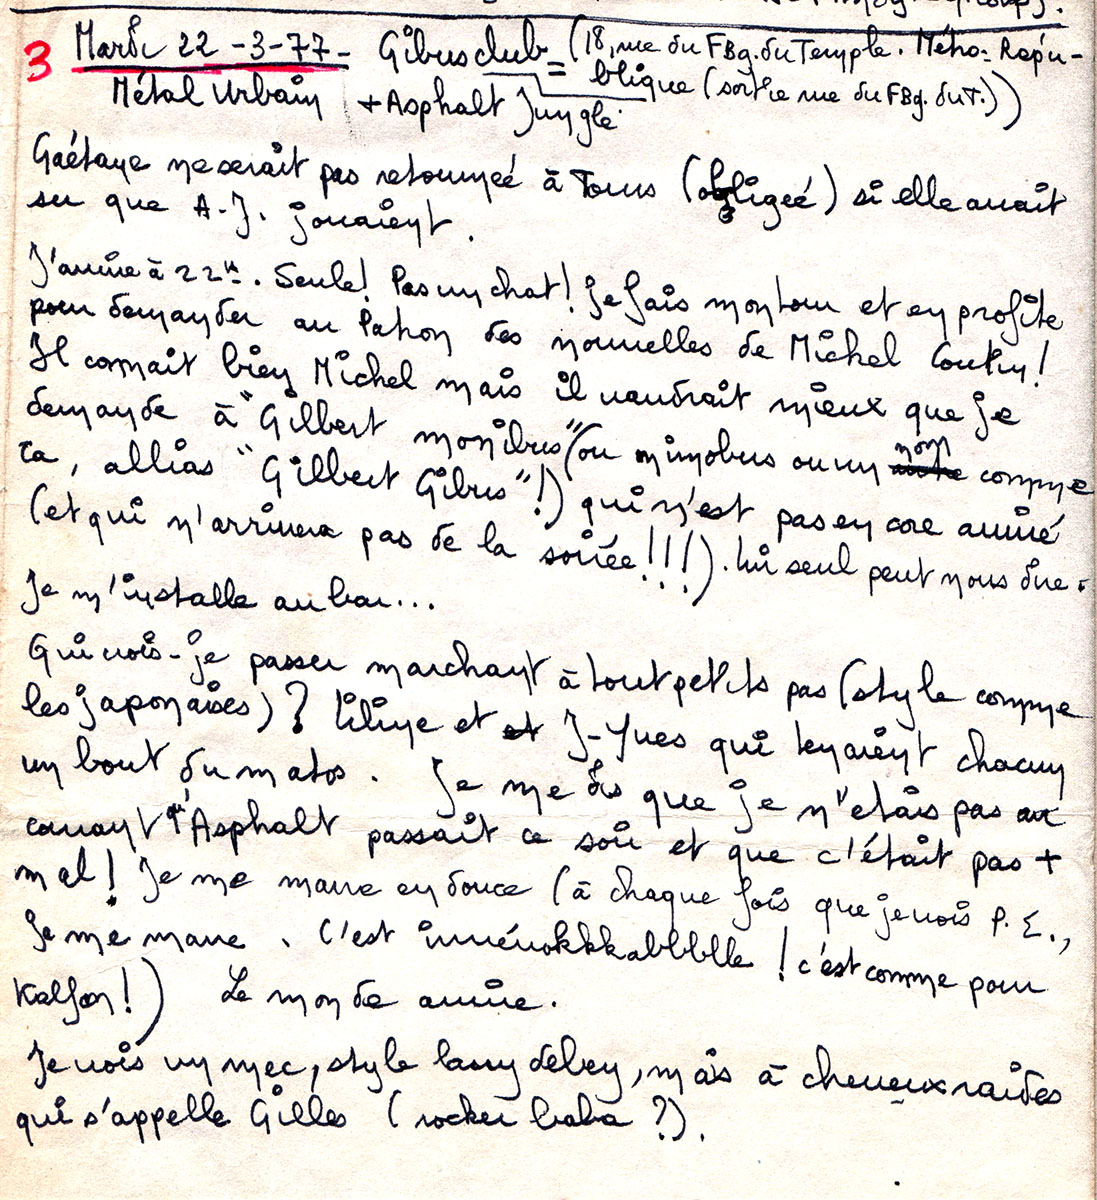 3 Mardi 22-3-77- Gibus club = (18, rue du FBg. du Temple. Métro: Répu-
blique (sortie rue du FBg. du T.))
Métal Urbain + Asphalt Jungle
Gaétane ne serait pas retournée à Tours (obligée) si elle avait
su que A-J. jouaient.
J'arrive à 22h. Seule! Pas un chat! Je fais mon tour et en profite
pour demander au Patron des nouvelles de Michel
Il connait bien Michel mais il vaudrait mieux que je
demande à "Gilbert monibus" (ou minobus ou un nom comme
ça, allias "Gilbert Gibus"!) qui n'est pas encore arrivé
(et qui n'arrivera pas de la soirée!!!). Lui seul peut nous dire.
Je m'installe au bar...
Qui vois-je passer marchant à tout petits pas (style comme
les japonaises)? Liline et et J-Yves qui tenaient chacun
un bout du matos. Je me dis que je n'étais pas au
courant qu'Asphalt passait ce soir et que c'était pas +
mal! Je me marre en douce (à chaque fois que je vois P.E.,
Je me marre. C'est irrévokkkabbblle! c'est comme pour
Kalfon!) Le monde arrive.
Je vois un mec, style larry debey, mais à cheveux raides
qui s'appelle Gilles (rocker baba?).